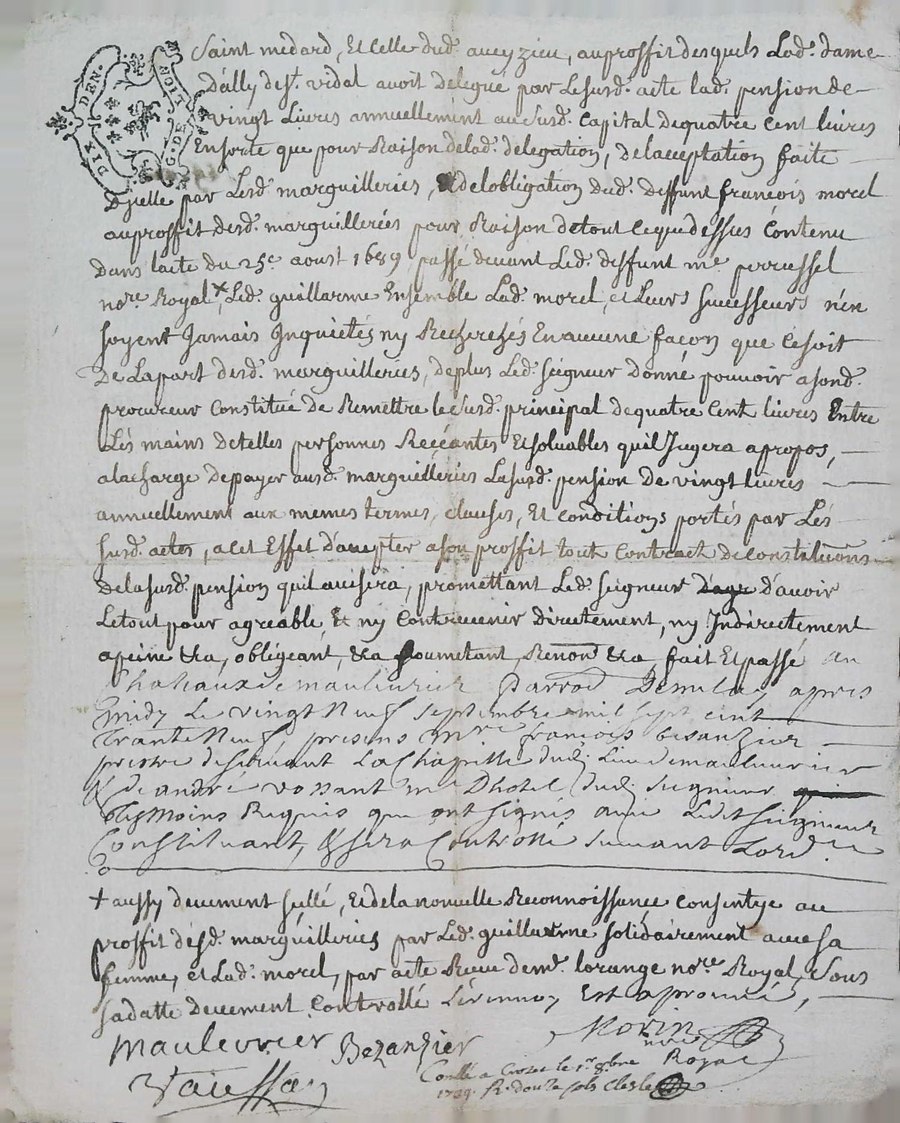 DIX DEN.
G. DE NOIT
Saint medard, Et Celle dud. aveyzieu, auproffit desquels Lad. dame
Dally de St. vidal avoit délegué par Lesusd. acte lad. pension de
vingt Livres annuellement au susd. Capital dequatre Cent livres
Ensorte que pour Raison delad. délegation, delacceptation faite
dyelle par Lesd. marguilleries, & delobligation dud. deffunt françois morel
auproffit desd. marguilleries pour Raison detout Cequedessus Contenu
Dans lacte du 25e. aoust 1689 passé devant Led. deffunt me. perrussel
nore. Royal + Led. guillarme Ensemble Lad. morel, et Leurs successeurs n'en
soyent Jamais Inquietés ny Recherchés Enaucune façon que Cesoit
De Lapart desd. marguilleries, deplus Led. seigneur donne pouvoir asond.
procureur Constitué de Remettre le susd. principal dequatre Cent livres Entre
Les mains detelles personnes Recéantes Etsoluables quilJugera apropos,
alacharge depayer ausd. marguilleries Lasusd. pension de vingt livres
annuellement aux memes termes, clauses, Et conditions portés par Les
susd. actes, acet Effet d'accepter ason proffit tout Contract deconstitutions
delasusd. pension quilavisera, promettant Led. seigneur d'avoir
Letout pour agreable, Et ny Contrevenir directement, ny Indirectement
apeine &ca, obligeant, &ca soumettant, Renonc. &ca, fait Etpassé au
Chateaux de maulevrier apres
midy Le vingt Neuf septembre mil sept cent
Trante Neuf, presens mre. François besanzier
prestre deservant La Chapelle dud. Lieu demaulevrier
& de andré vossant me Dhotel dud. seigneur
Temoins Requis que ont signés avec Ledit seigneur
Constituant, & sera Controllé suivant Lord.ce
+ aussy deuement sellé, Et dela nouvelle Reconnoissance consentye au
proffit désd. marguilleries par Led. guillarme solidairement avecsa
femme, et Lad. morel, par acte Receu deme. lorange nore. Royal, sous
sadatte deuement Controllé Lérenvoy Est aprouvé,
Maulevrier Bezanzier Morin
nore Royal
Contllé a le 1er 8bre
1739. R. douze sols